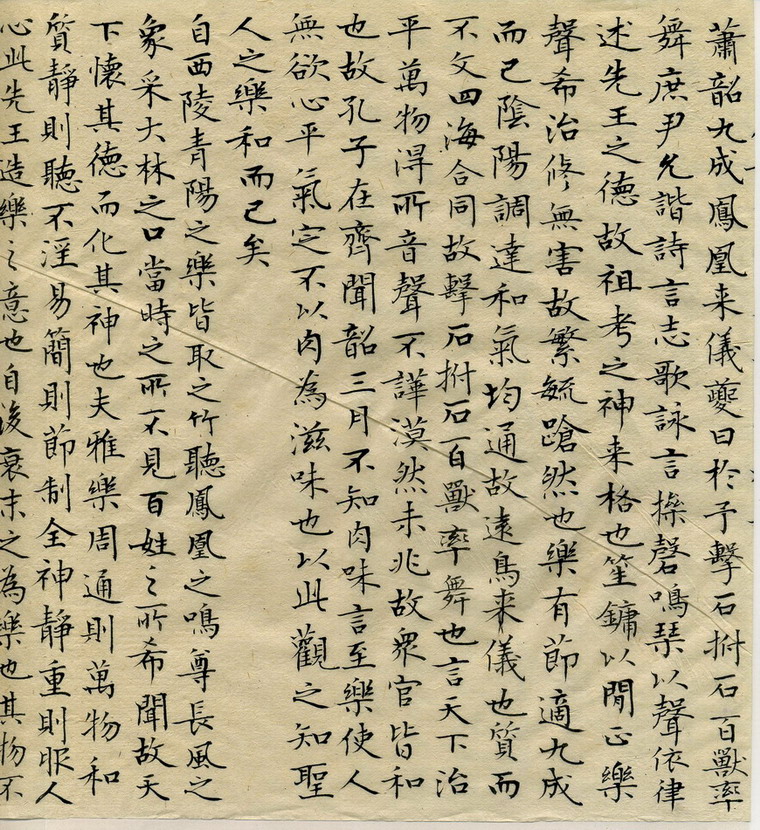 蕭韶九成鳳凰来儀夔曰於予擊石拊石百獸率
舞庶尹允諧詩言志歌詠言操磬鳴琴以聲依律
述先王之德故祖考之神来格也笙鏞以閒正樂
聲希治修無害故繁毓蹌然也樂有節適九成
而已陰陽調達和氣均通故遠鳥来儀也質而
不文四海合同故擊石拊石百獸率舞也言天下治
平萬物得所音聲不譁漠然未兆故眾官皆和
也故孔子在齊聞韶三月不知肉味言至樂使人
無欲心平氣定不以肉為滋味也以此觀之知聖
人之樂和而已矣
自西陵青陽之樂皆取之竹聽鳳凰之鳴尊長風之
象采大林之口當時之所不見百姓之所希聞故天
下懷其德而化其神也夫雅樂周通則萬物和
質靜則聽不淫易簡則節制全神靜重則服人
心此先王造樂之意也自後衰末之為樂也其物不